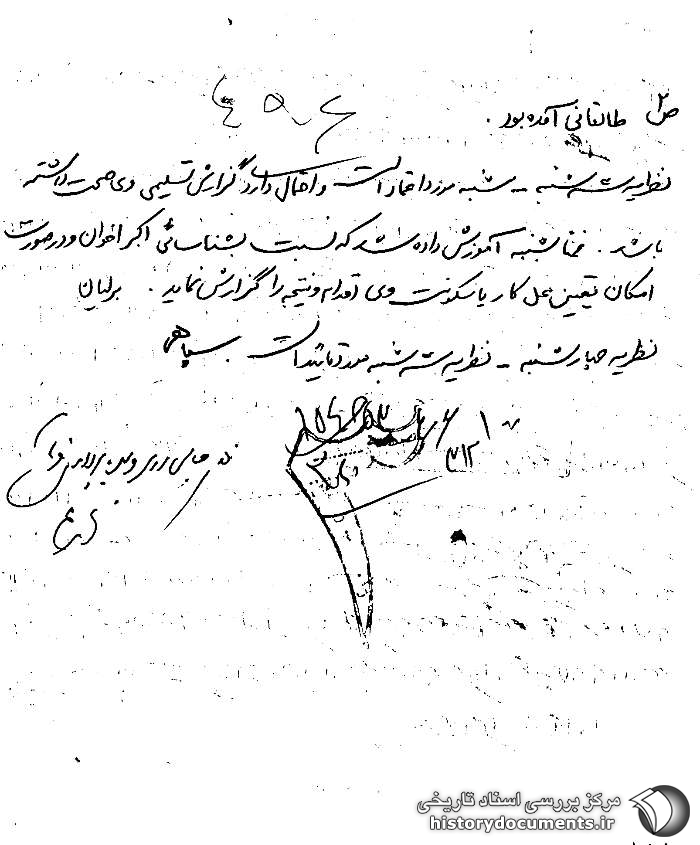 ص ۲ طالقانی آمده بود .
نظریه سه شنبه - شنبه مورد اعتماد است و احتمال دارد گزارش تسلیمی وی صحت داشته
باشد . ضمناً شنبه آموزش داده شد که نسبت بشناسائی اکبر اخوان و در صورت
امکان تعیین محل کار یا سکونت وی اقدام و نتیجه را گزارش نماید . برلیان
نظریه چهارشنبه - نظریه سه شنبه مورد تائید است . سپاهی
مرکز بررسی اسناد تاریخی
historydocuments.ir